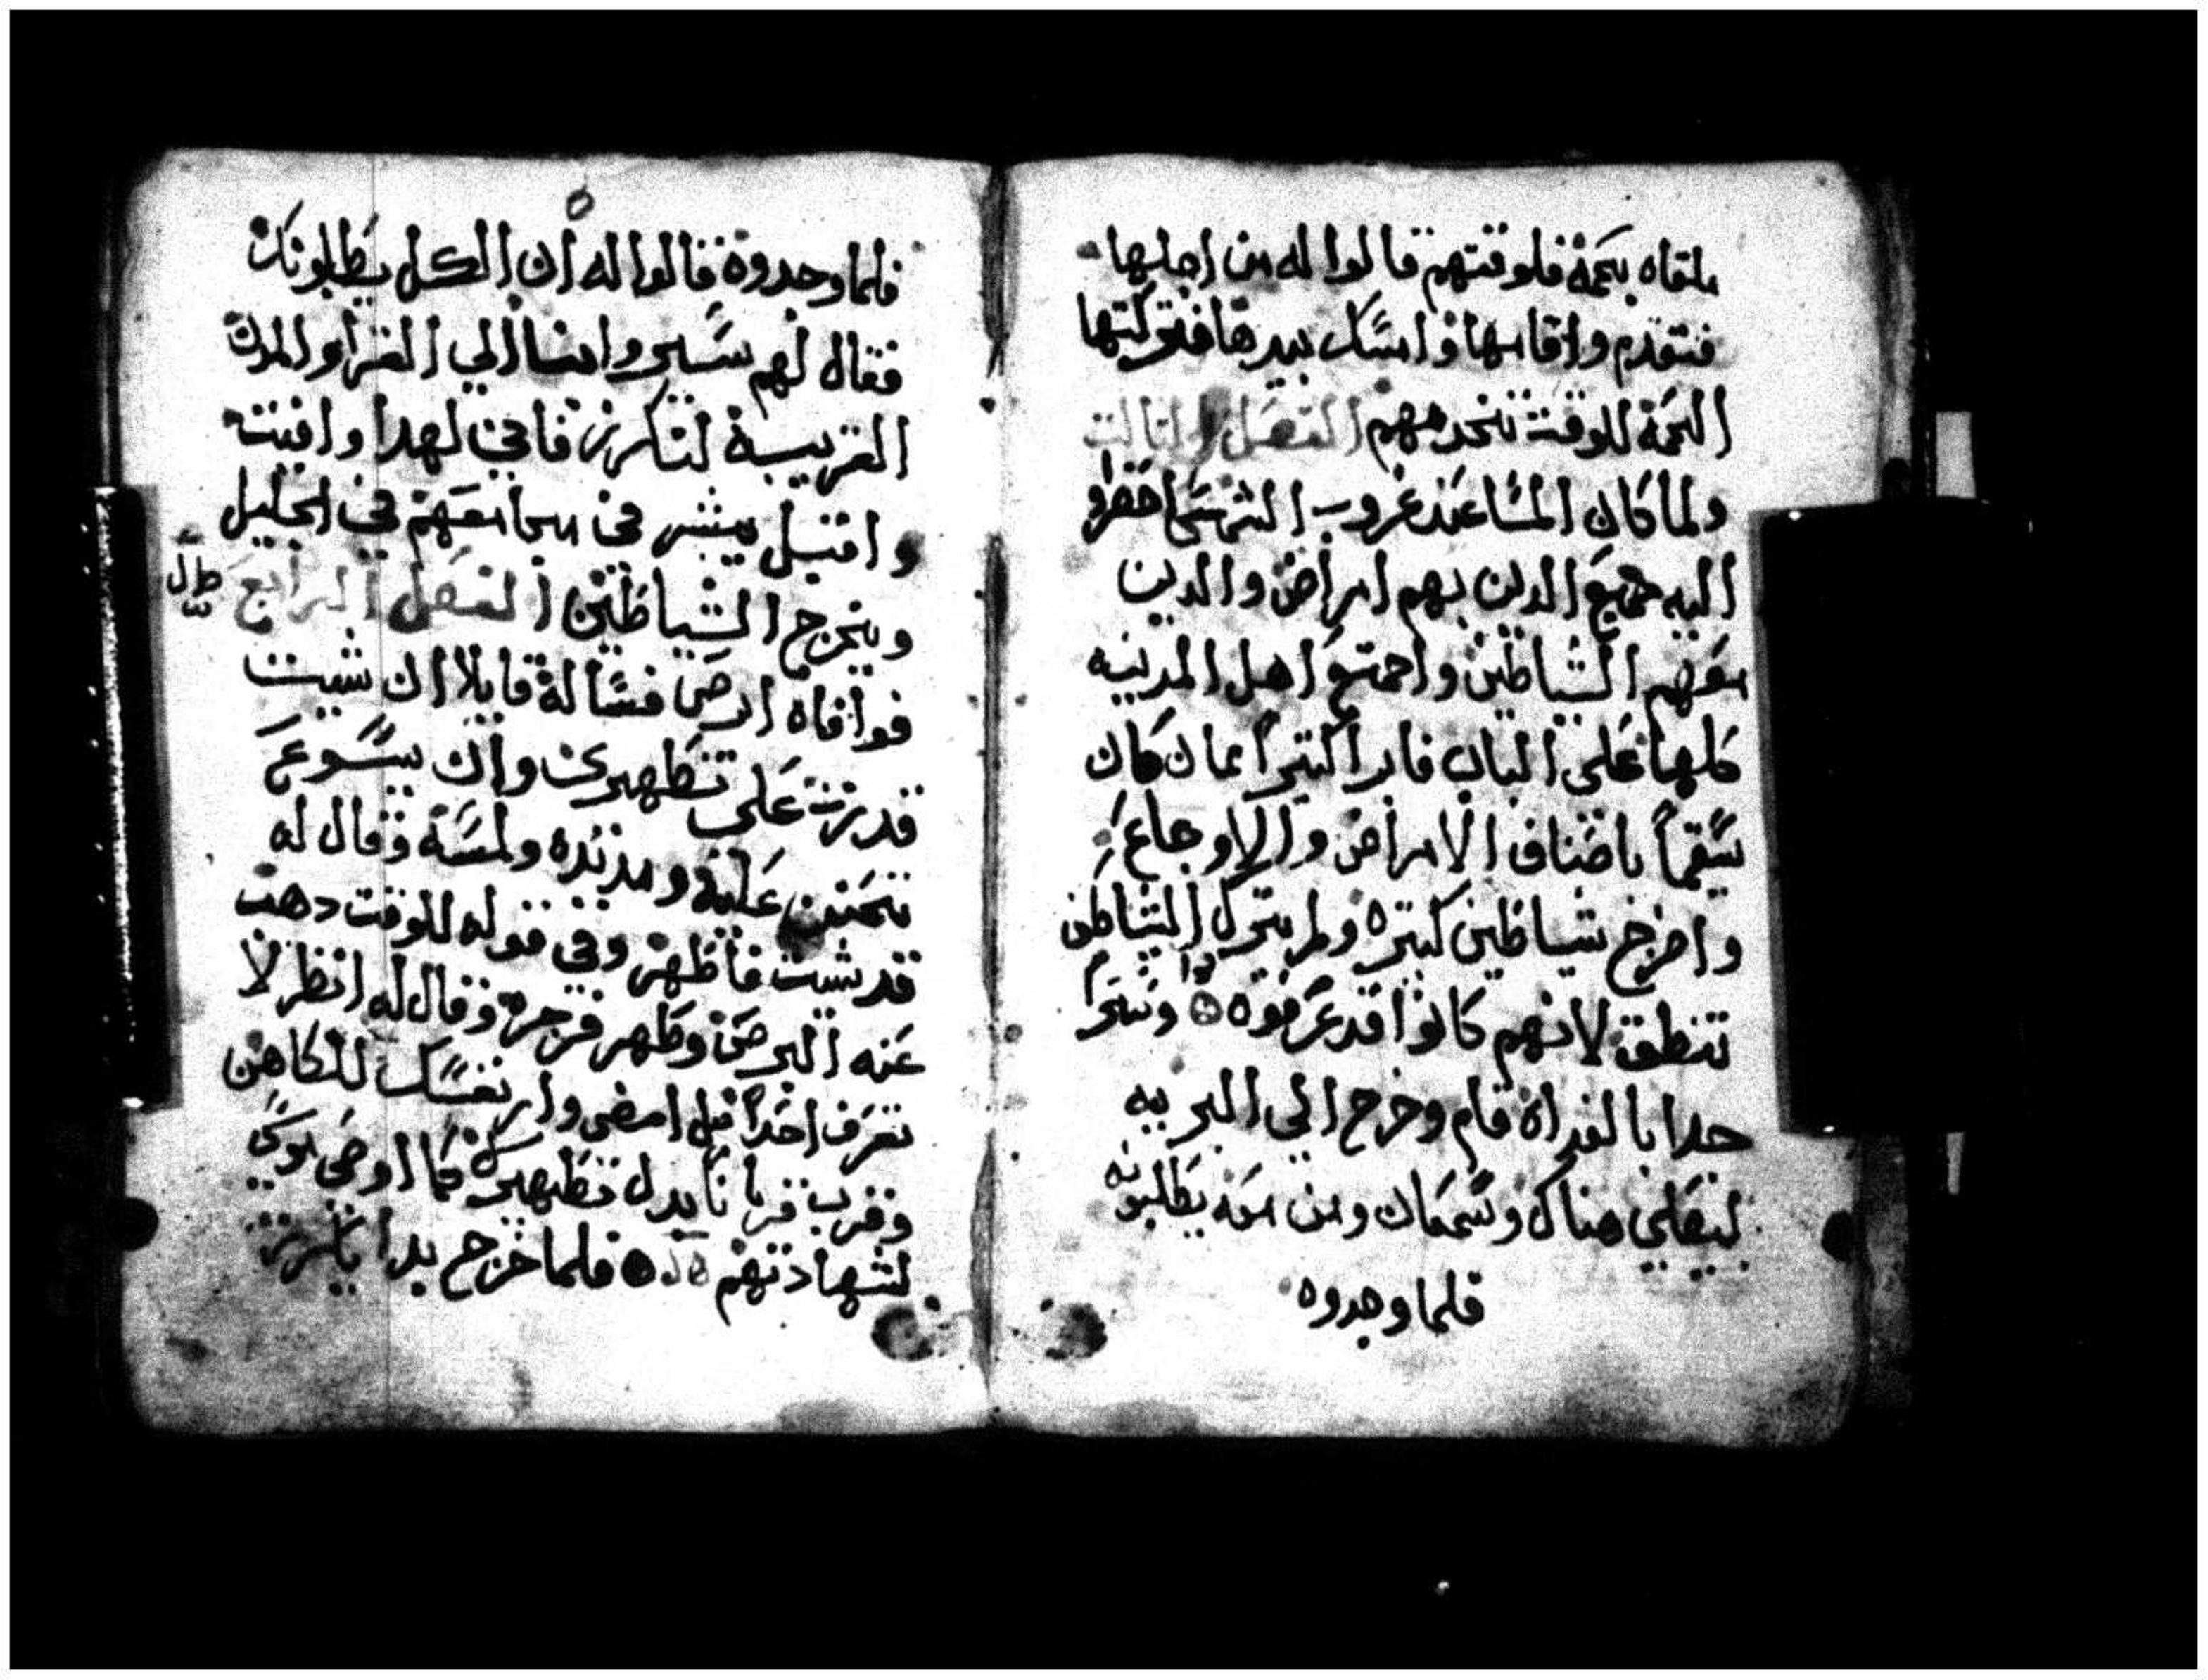 ملقاه بحمة فلوقتهم قالوا له من اجلها
فتقدم واقامها وامسك بيدها فتركتها
الحمة للوقت تخدمهم الفصل الثالت
ولما كان المسا عند غروب الشمس احضروا
اليه جميع الدين بهم امراض والدين
معهم الشياطين واجتمع اهل المدينه
كلها على الباب فابرا كتيرا ممان كان
سقيما باصناف الامراض والاوجاع
واخرج شياطين كتيره ولم يترك الشياطين
تنطق لانهم كانوا قد عرفوه وسحرا
جدا بالغداة قام وخرج الي البريه
ليصلي هناك وسمعان ومن معه يطلبونه
فلما وجدوه
فلما وجدوه قالوا له ان الكل يطلبونك
فقال لهم سيروا امنا الي القرا والمدن
القريبة لنكرز فاني لهدا وافيت
واقبل يبشر في مجامعهم في الجليل
ويخرج الشياطين الفصل الرابع
فوافاه ابرص فساله قايلا ان شيت
قدرت على تطهيري وان يسوع
تحنن عليه ومد يده ولمسه وقال له
قد شيت فاطهر وفي قوله للوقت دهب
عنه البرص وطهر فزجره وقال له انظر لا
تعرف احدا بل امضي وار نفسك للكاهن
وقرب قربانا بدل تطهيرك كما اوصى موسى
لشهادتهم فلما خرج بدا يكرز